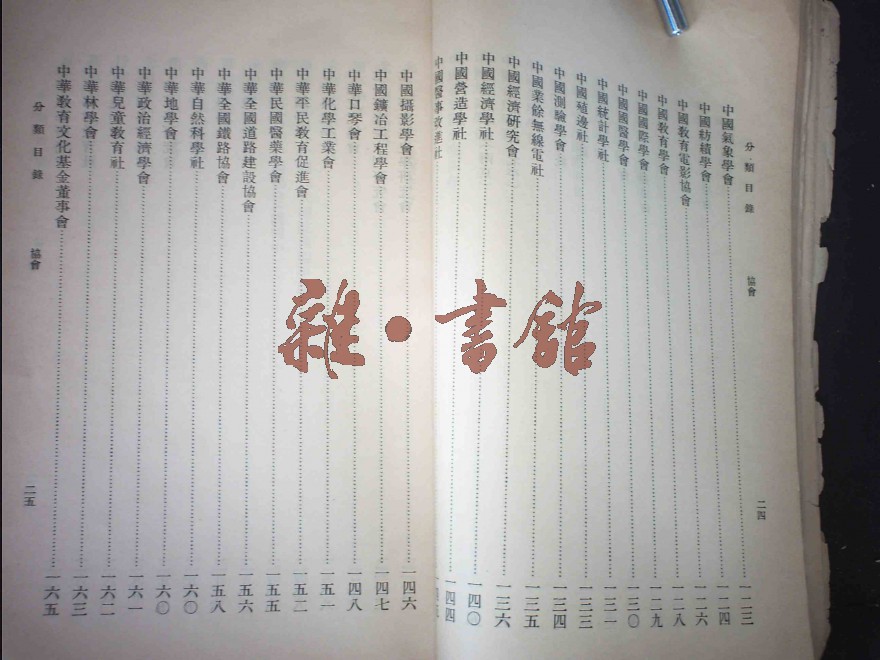 分類目錄 協會 二四
中國氣象學會 一二三
中國紡績學會 一二四
中國教育電影協會 一二六
中國教育學會 一二八
中國國際學會 一二九
中國國醫學會 一三〇
中國統計學社 一三一
中國殖邊社 一三三
中國測驗學會 一三四
中國業餘無線電社 一三五
中國經濟研究會 一三六
中國經濟學社 一四〇
中國營造學社 一四四
中國醫事改進社
中國攝影學會 一四六
中國鑛冶工程學會 一四七
中華口琴會 一四八
中華化學工業會 一五一
中華平民教育促進會 一五二
中華民國醫藥學會 一五五
中華全國道路建設協會 一五六
中華全國鐵路協會 一五八
中華自然科學社 一六〇
中華地學會 一六〇
中華政治經濟學會 一六一
中華兒童教育社 一六二
中華林學會 一六三
中華教育文化基金董事會 一六五
分類目錄 協會 二五
雜·書館